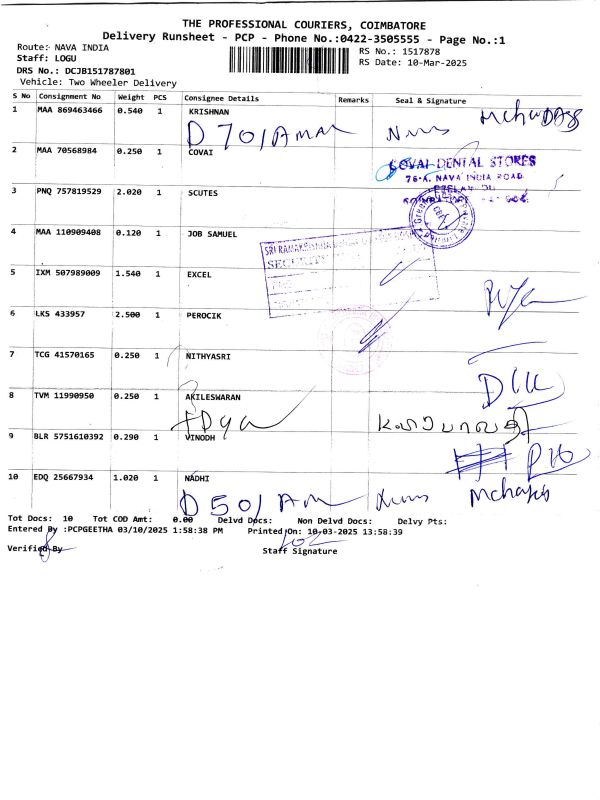 THE PROFESSIONAL COURIERS, COIMBATORE
Delivery Runsheet - PCP - Phone No.:0422-3505555 - Page No.:1
Route: NAVA INDIA
RS No.: 1517878
Staff: LOGU
RS Date: 10-Mar-2025
DRS No.: DCJB151787801
Vehicle: Two Wheeler Delivery
S No Consignment No Weight PCS Consignee Details Remarks Seal & Signature
1 MAA 869463466 0.540 1 KRISHNAN
D 701
2 MAA 70568984 0.250 1 COVAI
COVAI DENTAL STORES
76-A, NAVA INDIA ROAD
3 PNQ 757819529 2.020 1 SCUTES
4 MAA 110909408 0.120 1 JOB SAMUEL
SRI RAMAKRISHNA
SECURITY
5 IXM 507989009 1.540 1 EXCEL
6 LKS 433957 2.500 1 PEROCIK
7 TCG 41570165 0.250 1 NITHYASRI
8 TVM 11990950 0.250 1 AKILESWARAN
9 BLR 5751610392 0.290 1 VINODH
10 EDQ 25667934 1.020 1 NADHI
D 501
Tot Docs: 10 Tot COD Amt: 0.00 Delvd Docs: Non Delvd Docs: Delvy Pts:
Entered By :PCPGEETHA 03/10/2025 1:58:38 PM Printed On: 10-03-2025 13:58:39
Verified By Staff Signature